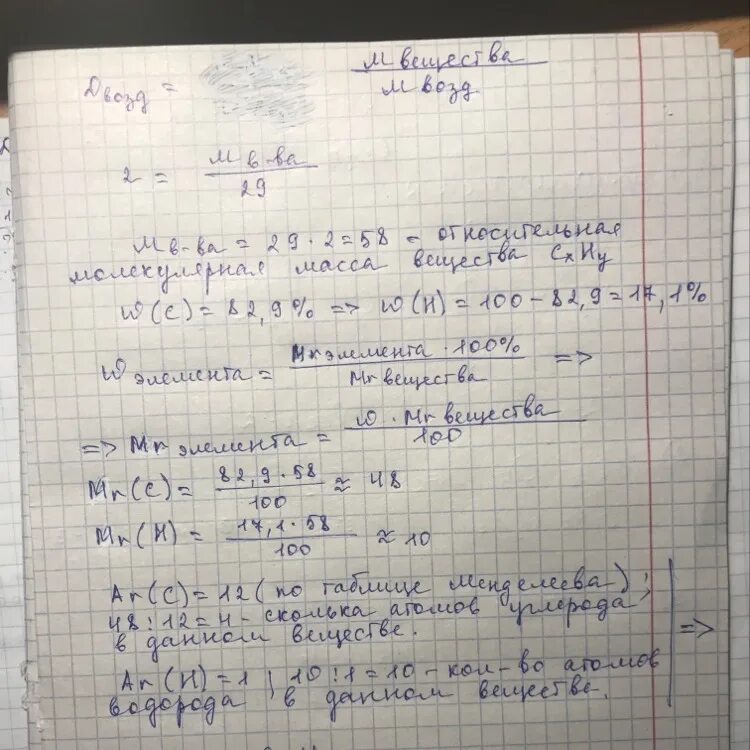 Двозд = М вещества / М возд.
2 = М в-ва / 29
М в-ва = 29 · 2 = 58 – относительная
молекулярная масса вещества CxHy
W(C) = 82,9% => W(H) = 100 – 82,9 = 17,1%
W элемента = Mr элемента · 100% / Mr вещества =>
=> Mr элемента = W · Mr вещества / 100
Mr(C) = 82,9 · 58 / 100 ≈ 48
Mr(H) = 17,1 · 58 / 100 ≈ 10
Ar(C) = 12 (по таблице Менделеева);
48 : 12 = 4 – сколька атомов углерода
в данном веществе.
=>
Ar(H) = 1; 10 : 1 = 10 – кол-во атомов
водорода в данном веществе.